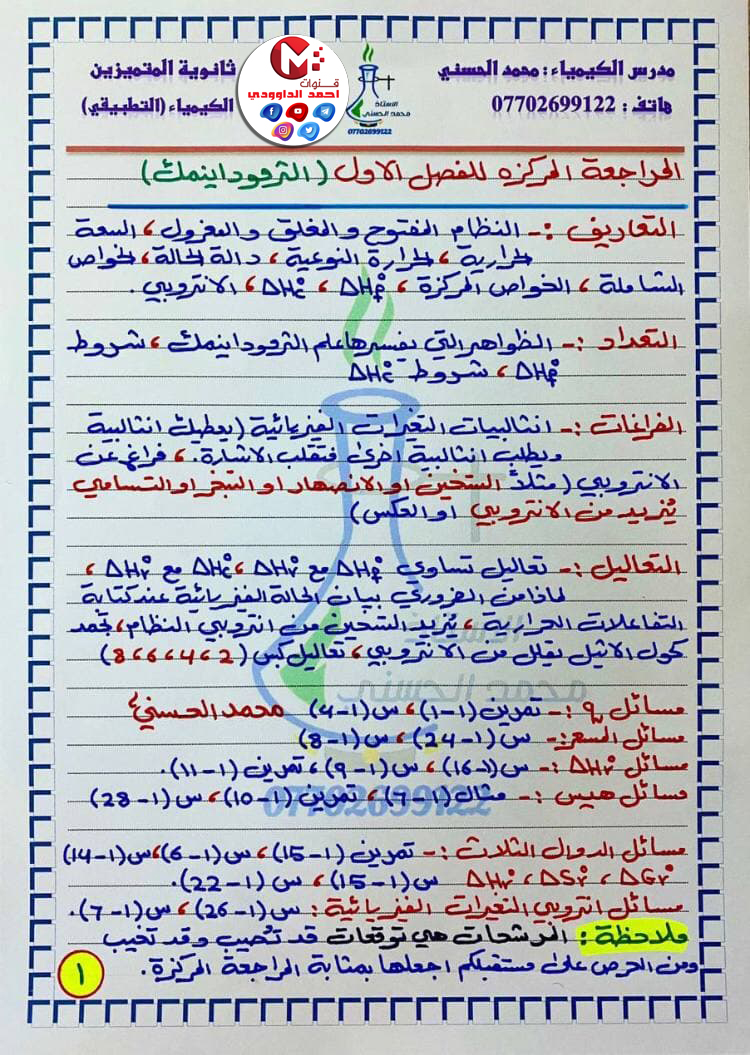 مدرس الكيمياء : محمد الحسني
هاتف : 07702699122
الاستاذ
محمد الحسني
07702699122
قنوات
احمد الداوودي
ثانوية المتميزين
الكيمياء (التطبيقي)
المراجعة المركزه للفصل الاول (الثرموداينمك)
التعاريف :- النظام المفتوح والمغلق والمعزول، السعة
الحرارية، الحرارة النوعية، دالة الحالة، الخواص
الشاملة، الخواص المركزة، ΔHf°، ΔHc°، الانتروبي.
التعداد :- الظواهر التي يفسرها علم الثرموداينمك، شروط
ΔHf°، شروط ΔHc°
الفراغات :- انثالبيات التغيرات الفيزيائية (يعطيك انثالبية
ويطلب انثالبية اخرى فتقلب الاشارة.، فراغ عن
الانتروبي (مثلاً التسخين او الانصهار او التبخر او التسامي
يزيد من الانتروبي او العكس)
التعاليل :- تعاليل تساوي ΔHf° مع ΔHr°، ΔHc° مع ΔHr°،
لماذا من الضروري بيان الحالة الفيزيائية عند كتابة
التفاعلات الحرارية، يزيد التسخين من انتروبي النظام، تجمد
كحول الاثيل يقلل من الانتروبي، تعاليل كبس (2، 4، 6، 8)
مسائل q :- تمرين (1-1)، س(1-4) محمد الحسني
مسائل المسعر:- س(1-24)، س(1-8)
مسائل ΔHr° :- س(1-16)، س(1-9)، تمرين (1-11).
مسائل هيس :- مثال (1-7)، تمرين (1-10)، س(1-28)
مسائل الدوال الثلاث :- تمرين (1-15)، س(1-6)، س(1-14)
ΔHr°، ΔSr°، ΔGr° س(1-15)، س(1-22).
مسائل انتروبي التغيرات الفيزيائية : س(1-26)، س(1-7).
ملاحظة : الترشحات هي توقعات قد تُصيب وقد تخيب
ومن الحرص على مستقبلكم اجعلها بمثابة المراجعة المركزة.
١
الاستاذ
محمد الحسني
07702699122